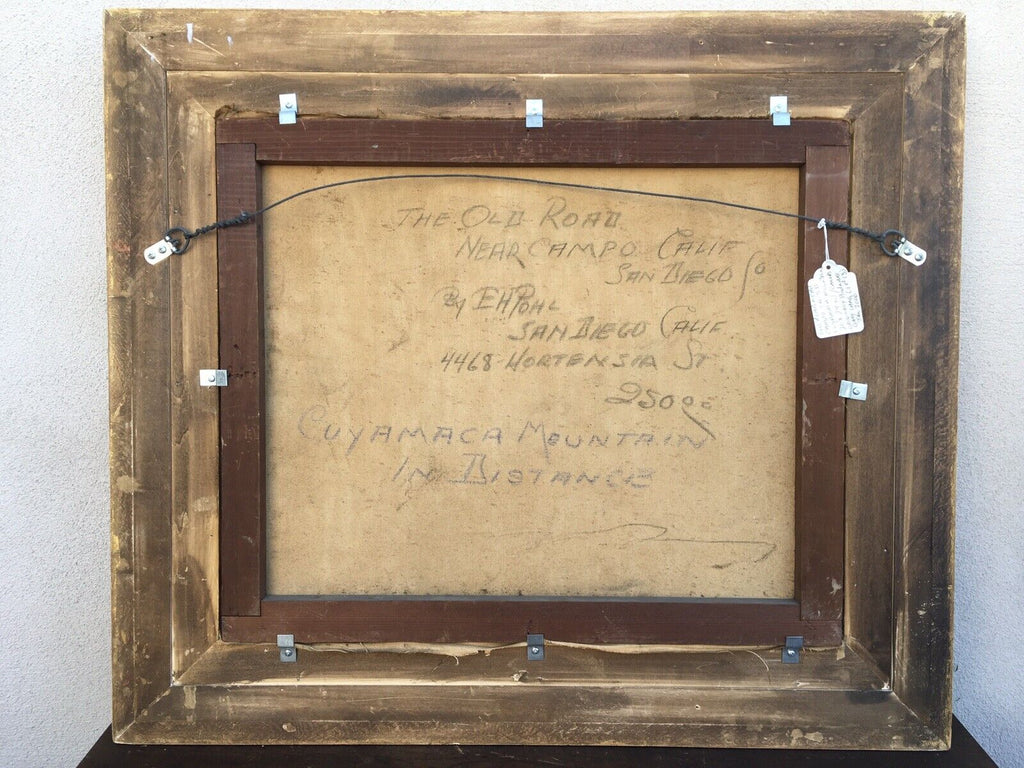 THE OLD ROAD
NEAR CAMPO CALIF
SAN DIEGO Co
By EHPOHL
SAN DIEGO CALIF.
4468 HORTENSIA ST
2500
CUYAMACA MOUNTAIN
IN DISTANCE